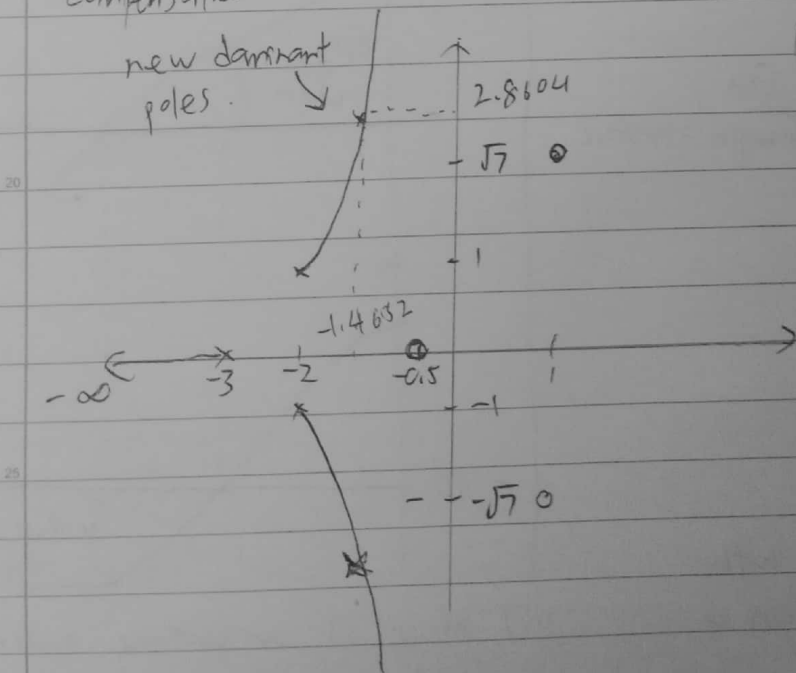 new dominant
poles.
2.8604
20
√7
1
-1.4632
-∞
-3
-2
-0.5
1
-1
25
-√7